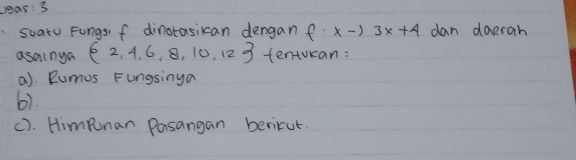 ugas : 3
. Suatu Fungsi f dinotasikan dengan f : x -> 3x +4 dan daerah
asalnya { 2, 4, 6, 8, 10, 12 } tentukan :
a). Rumus Fungsinya
b).
c). Himpunan Pasangan berikut.